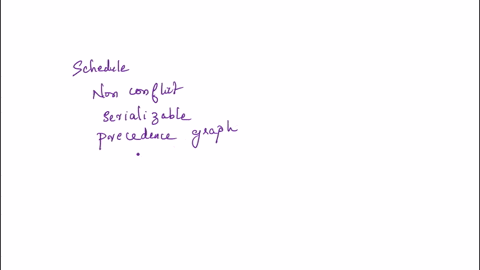 Schedule
Non conflict
serializable
precedence graph